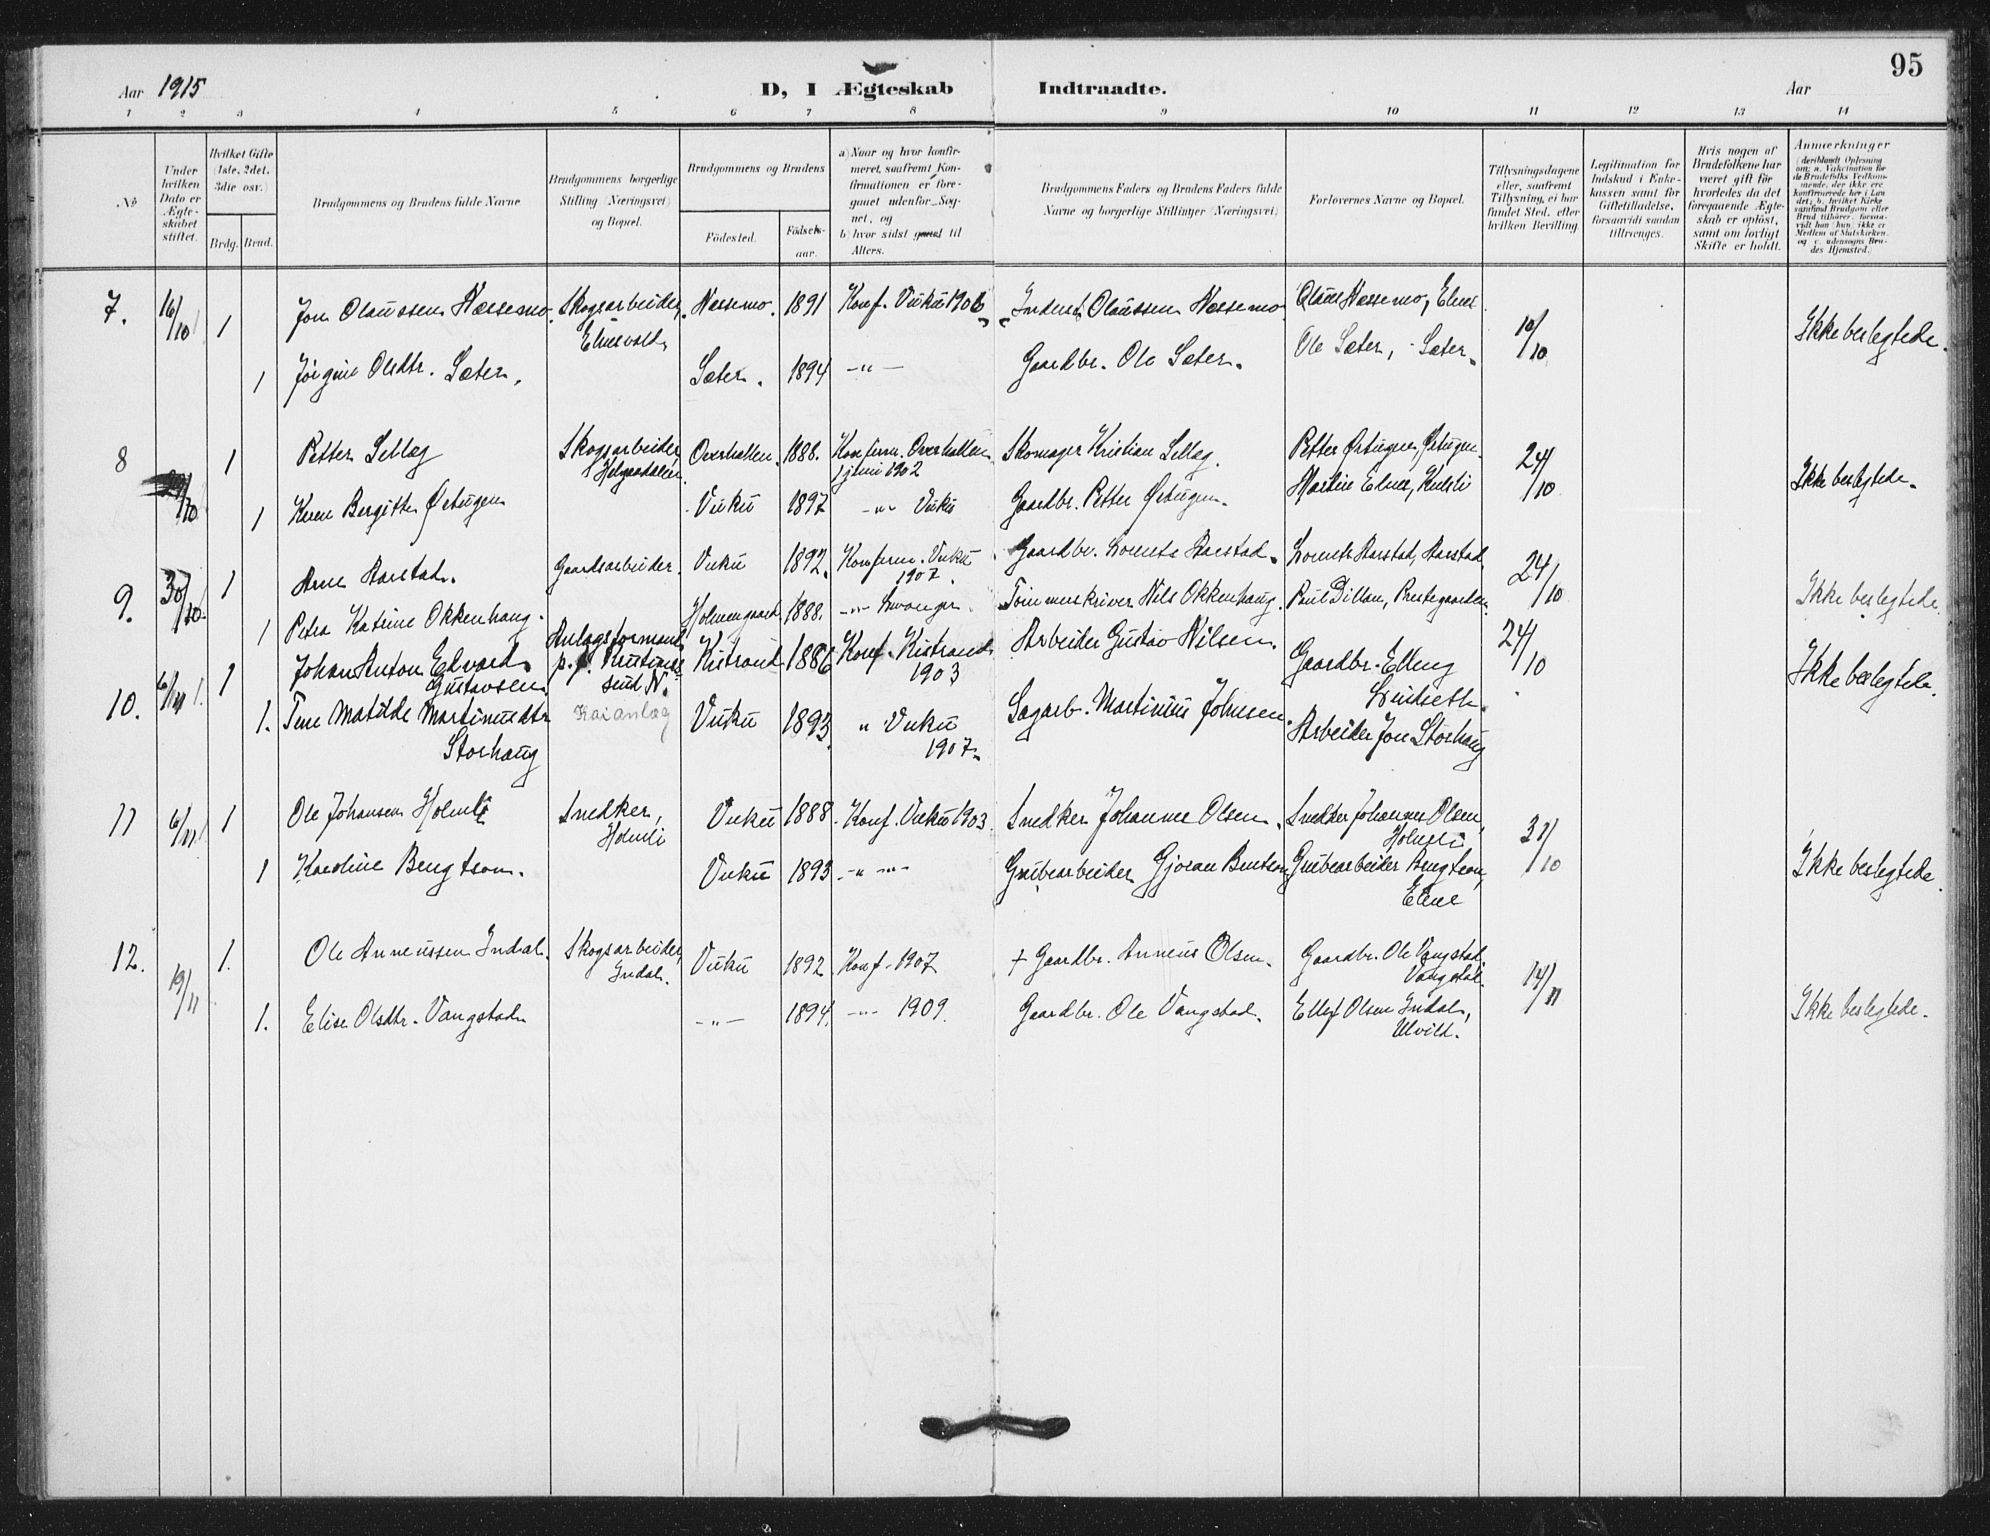 95
Aar 1915 D, I Ægteskab Indtraadte. Aar
1 2 3 4 5 6 7 8 9 10 11 12 13 14
No
Under hvilken Dato er Ægteskabet stiftet.
Hvilket Gifte (1ste, 2det, 3die osv.)
Brdg. Brud.
Brudgommens og Brudens fulde Navne
Brudgommens borgerlige Stilling (Næringsvei) og Bopæl.
Brudgommens og Brudens
Fødested. Fødselsaar.
a) Naar og hvor konfirmeret, saafremt Konfirmationen er foregaaet udenfor Sognet, og
b) hvor sidst gaaet til Alters.
Brudgommens Faders og Brudens Faders fulde Navne og borgerlige Stillinger (Næringsvei)
Forlovernes Navne og Bopæl.
Tillysningsdagene eller, saafremt Tillysning ei har fundet Sted, efter hvilken Bevilling.
Legitimation for Indskud i Enkekassen samt for Giftetilladelse, forsaavidt saadan tiltrænges.
Hvis nogen af Brudefolkene har været gift før hvorledes da det foregaaende Ægteskab er opløst, samt om lovligt Skifte er holdt.
Anmærkninger
7. 16/10 1 Jon Olaussen Næssemo. Skogsarbeider, Næssemo. 1891 Konf. Vuku 1906 Olaussen Næssemo Olaus Næssemo, Elnes 10/10 Ikke beslegtede.
1 Jørgine Olsdtr. Sæter. Sæter. 1894 —"— Gaardbr. Ole Sæter. Ole Sæter, Sæter.
8 1 Petter Sellæg Skogsarbeider Helgaadalen. Overhallen. 1888. Konfirm. Overhallen juni 1902 Skomager Kristian Sellæg. Petter Østugen, Østugen. 24/10 Ikke beslegtede.
1 Karen Bergitte Østugen Vuku 1897 —"— Vuku Gaardbr. Petter Østugen. Martin Elnes,
9. 30/10. 1 Arne Aarstad. Gaardsarbeider. Vuku 1892. Konfirm. Vuku 1907. Gaardbr. Lornts Aarstad. Lornts Aarstad, Aarstad. 24/10 Ikke beslegtede.
1 Petra Katrine Okkenhaug. 1888. —"— Levanger. Tømmerskriver Nils Okkenhaug. Paul Dillan, Prestegaarden.
10. 6/11. 1 Johan Anton Edvard Gustavsen Anlægsformand Kistrand 1886 Konf. Kistrand 1903 Arbeider Gustav Nilsen Gaardbr. Elling 24/10 Ikke beslegtede.
1. Tine Matilde Martinusdtr Storhaug Kaianlæg Vuku 1893. " Vuku 1907. Sagarb. Martinus Johnsen. Arbeider Jon Storhaug
11 6/11 1 Ole Johansen Holmli Snedker, Holmli Vuku 1888. Konf. Vuku 1903. Snedker Johannes Olsen. Snedker Johannes Olsen, Holmli 31/10 Ikke beslegtede.
1 Karoline Bengtson. Vuku 1893 —"—"— Grubearbeider Gjøran Bentson Grubearbeider Bengtson, Elne
12. 19/11 1. Ole Anneussen Indal. Skogsarbeider, Indal. Vuku 1892 Konf. 1907 + Gaardbr. Anneus Olsen. Gaardbr. Ole Vangstad Vangstad. 14/11 Ikke beslegtede.
1. Elise Olsdtr. Vangstad —"— 1894. —"— 1909. Gaardbr. Ole Vangstad. Ellef Olsen Indal, Ulvild.